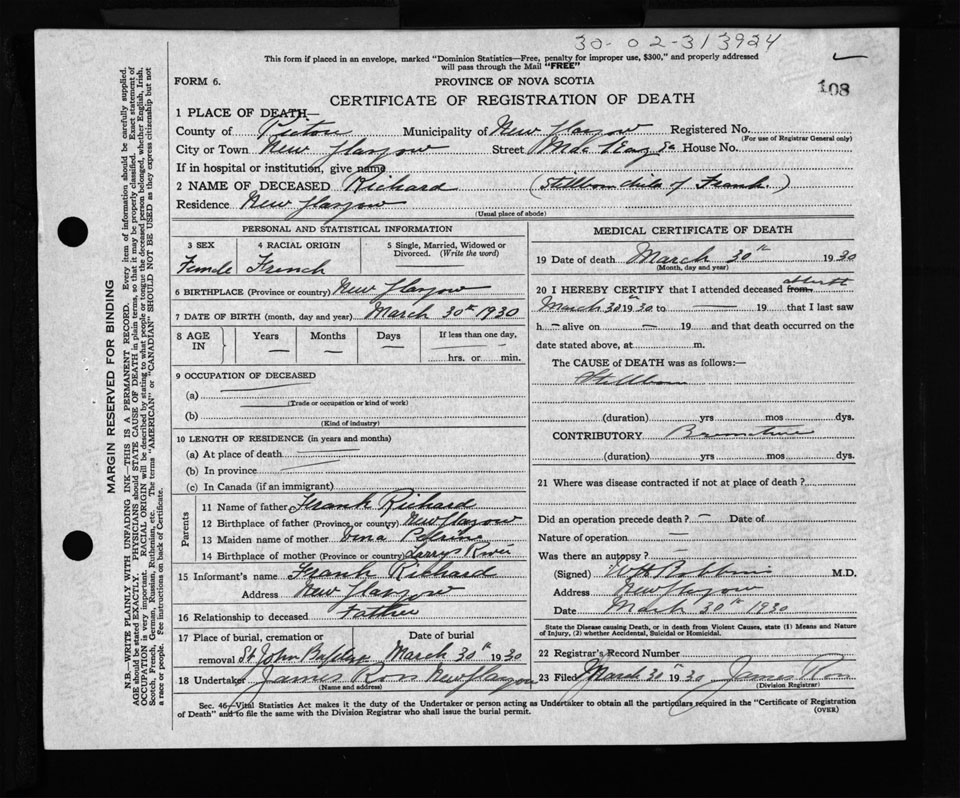 30-02-313924
This form if placed in an envelope, marked "Dominion Statistics—Free, penalty for improper use, $300," and properly addressed
will pass through the Mail "FREE"
108
FORM 6. PROVINCE OF NOVA SCOTIA
CERTIFICATE OF REGISTRATION OF DEATH
1 PLACE OF DEATH—
County of Pictou Municipality of New Glasgow Registered No.
(For use of Registrar General only)
City or Town New Glasgow Street House No.
If in hospital or institution, give name
2 NAME OF DECEASED Richard (Stillborn child of Frank.)
Residence New Glasgow
(Usual place of abode)
PERSONAL AND STATISTICAL INFORMATION
3 SEX 4 RACIAL ORIGIN 5 Single, Married, Widowed or
Divorced. (Write the word)
Female French
6 BIRTHPLACE (Province or country) New Glasgow
7 DATE OF BIRTH (month, day and year) March 30th 1930
8 AGE IN Years Months Days If less than one day,
— — — hrs. or min.
9 OCCUPATION OF DECEASED
(a)
(Trade or occupation or kind of work)
(b)
(Kind of industry)
10 LENGTH OF RESIDENCE (in years and months)
(a) At place of death
(b) In province
(c) In Canada (if an immigrant)
Parents
11 Name of father Frank Richard
12 Birthplace of father (Province or country) New Glasgow
13 Maiden name of mother
14 Birthplace of mother (Province or country) Larrys River
15 Informant's name Frank Richard
Address New Glasgow
16 Relationship to deceased Father
17 Place of burial, cremation or Date of burial
removal St John Baptist March 30th 1930
18 Undertaker James Ross New Glasgow
(Name and address)
MEDICAL CERTIFICATE OF DEATH
19 Date of death March 30th 1930
(Month, day and year)
20 I HEREBY CERTIFY that I attended deceased from
March 30th 1930 to — 19 that I last saw
h — alive on — 19 and that death occurred on the
date stated above, at m.
The CAUSE of DEATH was as follows:—
Stillborn
(duration) yrs mos dys.
CONTRIBUTORY
(duration) yrs mos dys.
21 Where was disease contracted if not at place of death?
Did an operation precede death? — Date of
Nature of operation —
Was there an autopsy? —
(Signed) M.D.
Address New Glasgow
Date March 30th 1930
State the Disease causing Death, or in death from Violent Causes, state (1) Means and Nature
of Injury, (2) whether Accidental, Suicidal or Homicidal.
22 Registrar's Record Number
23 Filed March 30th 1930 James Ross
(Division Registrar)
Sec. 46—Vital Statistics Act makes it the duty of the Undertaker or person acting as Undertaker to obtain all the particulars required in the "Certificate of Registration
of Death" and to file the same with the Division Registrar who shall issue the burial permit.
(OVER)
MARGIN RESERVED FOR BINDING
N.B.—WRITE PLAINLY WITH UNFADING INK—THIS IS A PERMANENT RECORD. Every item of information should be carefully supplied.
AGE should be stated EXACTLY. PHYSICIANS should STATE CAUSE OF DEATH in plain terms, so that it may be properly classified. Exact statement of
OCCUPATION is very important. RACIAL ORIGIN will be described by stating to what people or tongue the deceased person belonged, whether English, Irish,
Scotch, French, German, Russian, Ruthenian, etc. The terms "AMERICAN" or "CANADIAN" SHOULD NOT BE USED as they express citizenship but not
a race or people. Fee instructions on back of Certificate.